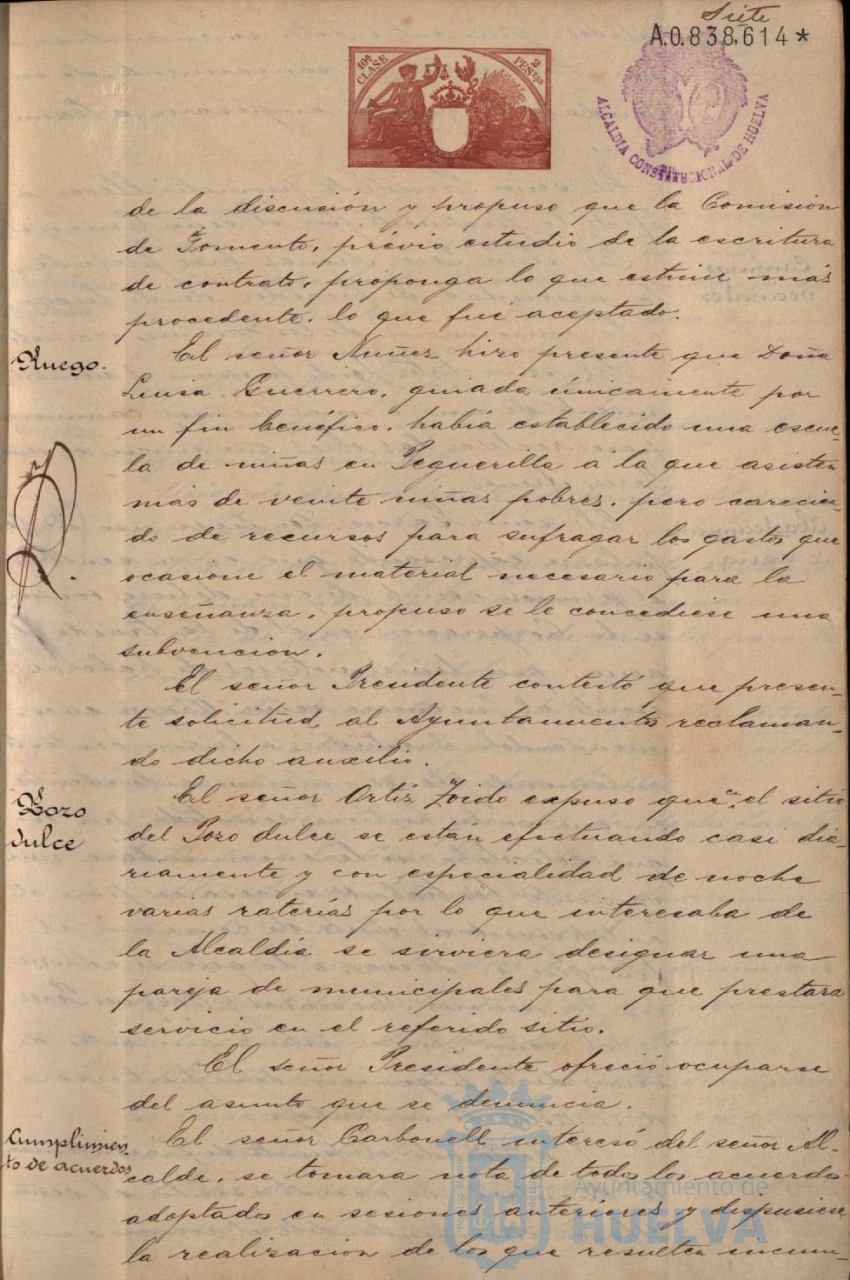 Siete
A.0.838,614*
10ª CLASE
2 PESTAS
ALCALDIA CONSTITUCIONAL DE HUELVA
de la discusión y propuso que la Comisión
de Fomento, prévio estudio de la escritura
de contrato, proponga lo que estime más
procedente, lo que fué aceptado.
Ruego.
El señor Nuñez hizo presente que Doña
Luisa Guerrero, guiada únicamente por
un fin benéfico, había establecido una escue-
la de niñas en Peguerilla a la que asisten
más de veinte niñas pobres, pero carecien-
do de recursos para sufragar los gastos que
ocasione el material necesario para la
enseñanza, propuso se le concediese una
subvencion.
El señor Presidente contestó que presen-
te solicitud al Ayuntamiento reclaman-
do dicho auxilio.
Pozo
dulce
El señor Ortiz Zoido expuso que en el sitio
del Pozo dulce se están efectuando casi dia-
riamente y con especialidad de noche
varias raterías por lo que interesaba de
la Alcaldía se sirviera designar una
pareja de municipales para que prestara
servicio en el referido sitio.
El señor Presidente ofreció ocuparse
del asunto que se denuncia.
Cumplimien-
to de acuerdos
El señor Carbonell interesó del señor Al-
calde, se tomara nota de todos los acuerdos
adoptados en sesiones anteriores y dispusiese
la realizacion de los que resulten incum-
Ayuntamiento de
HUELVA